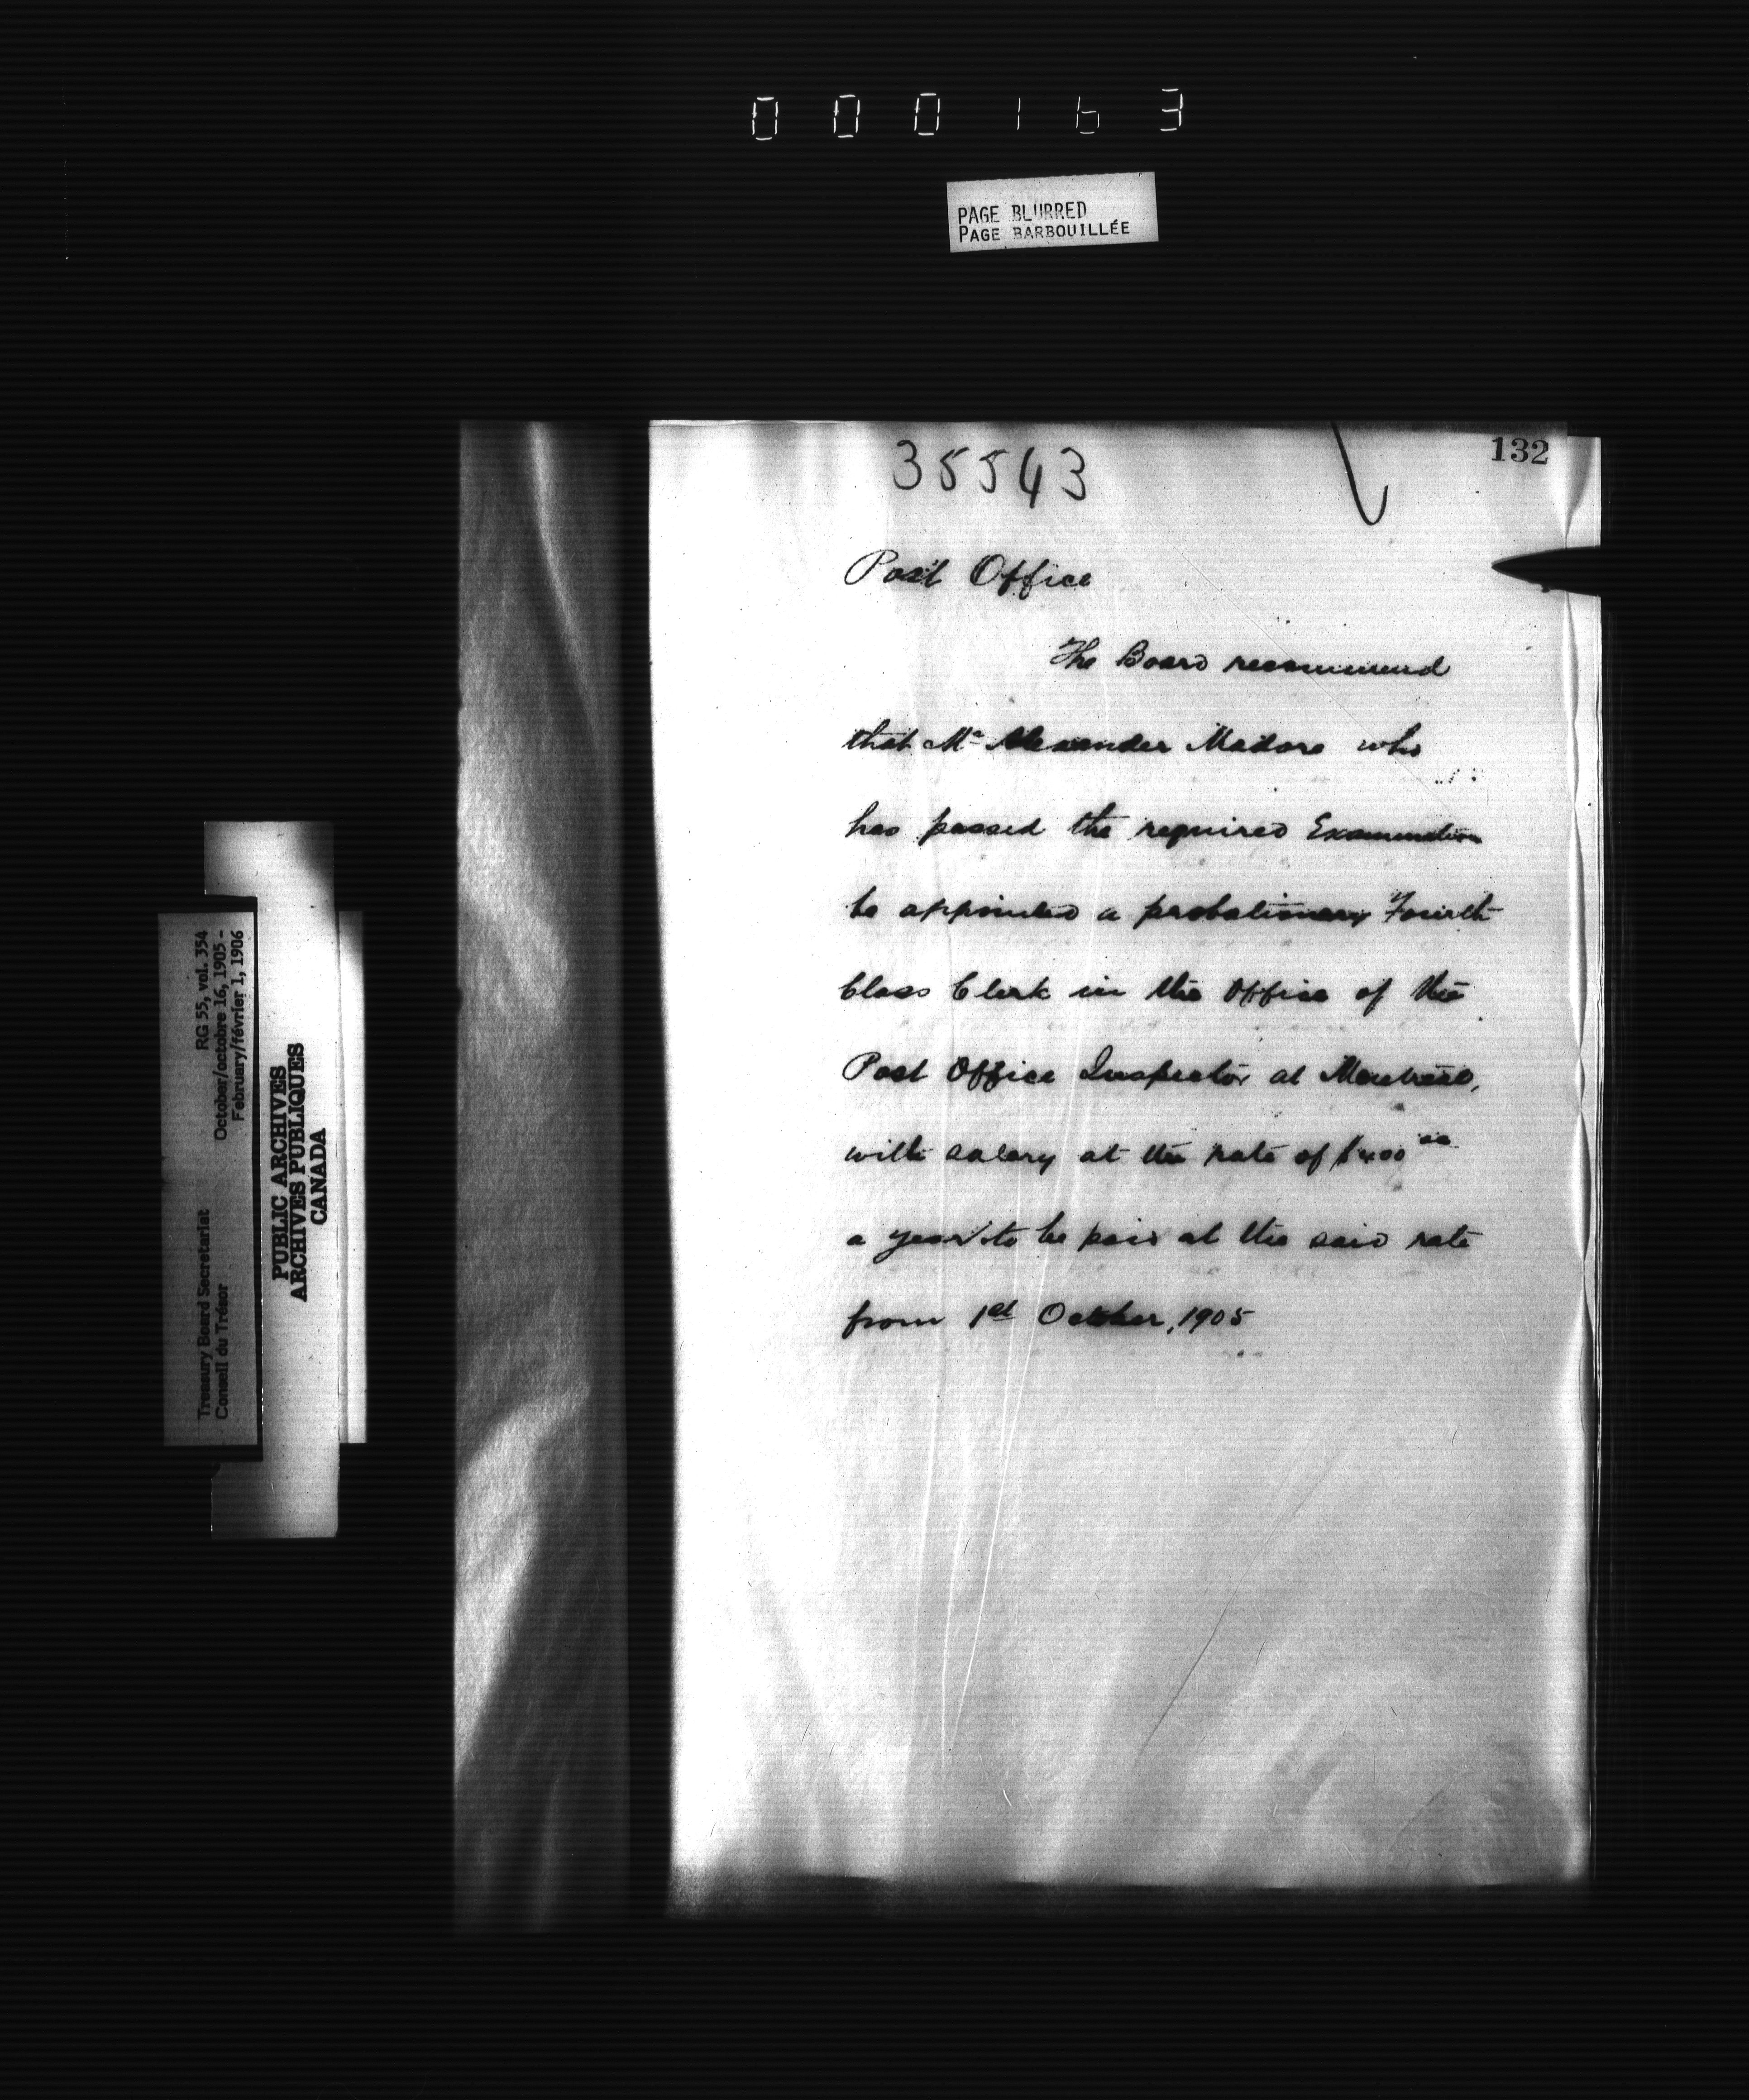 000163
PAGE BLURRED
PAGE BARBOUILLÉE
132
35543
Post Office
The Board recommend
that Mr Alexander Madore who
has passed the required Examination
be appointed a probationary Fourth
Class Clerk in the Office of the
Post Office Inspector at Montreal,
with salary at the rate of $400 00
a year to be paid at the said rate
from 1st October, 1905
Treasury Board Secretariat RG 55, vol. 354
Conseil du Trésor October/octobre 16, 1905 -
February/février 1, 1906
PUBLIC ARCHIVES
ARCHIVES PUBLIQUES
CANADA